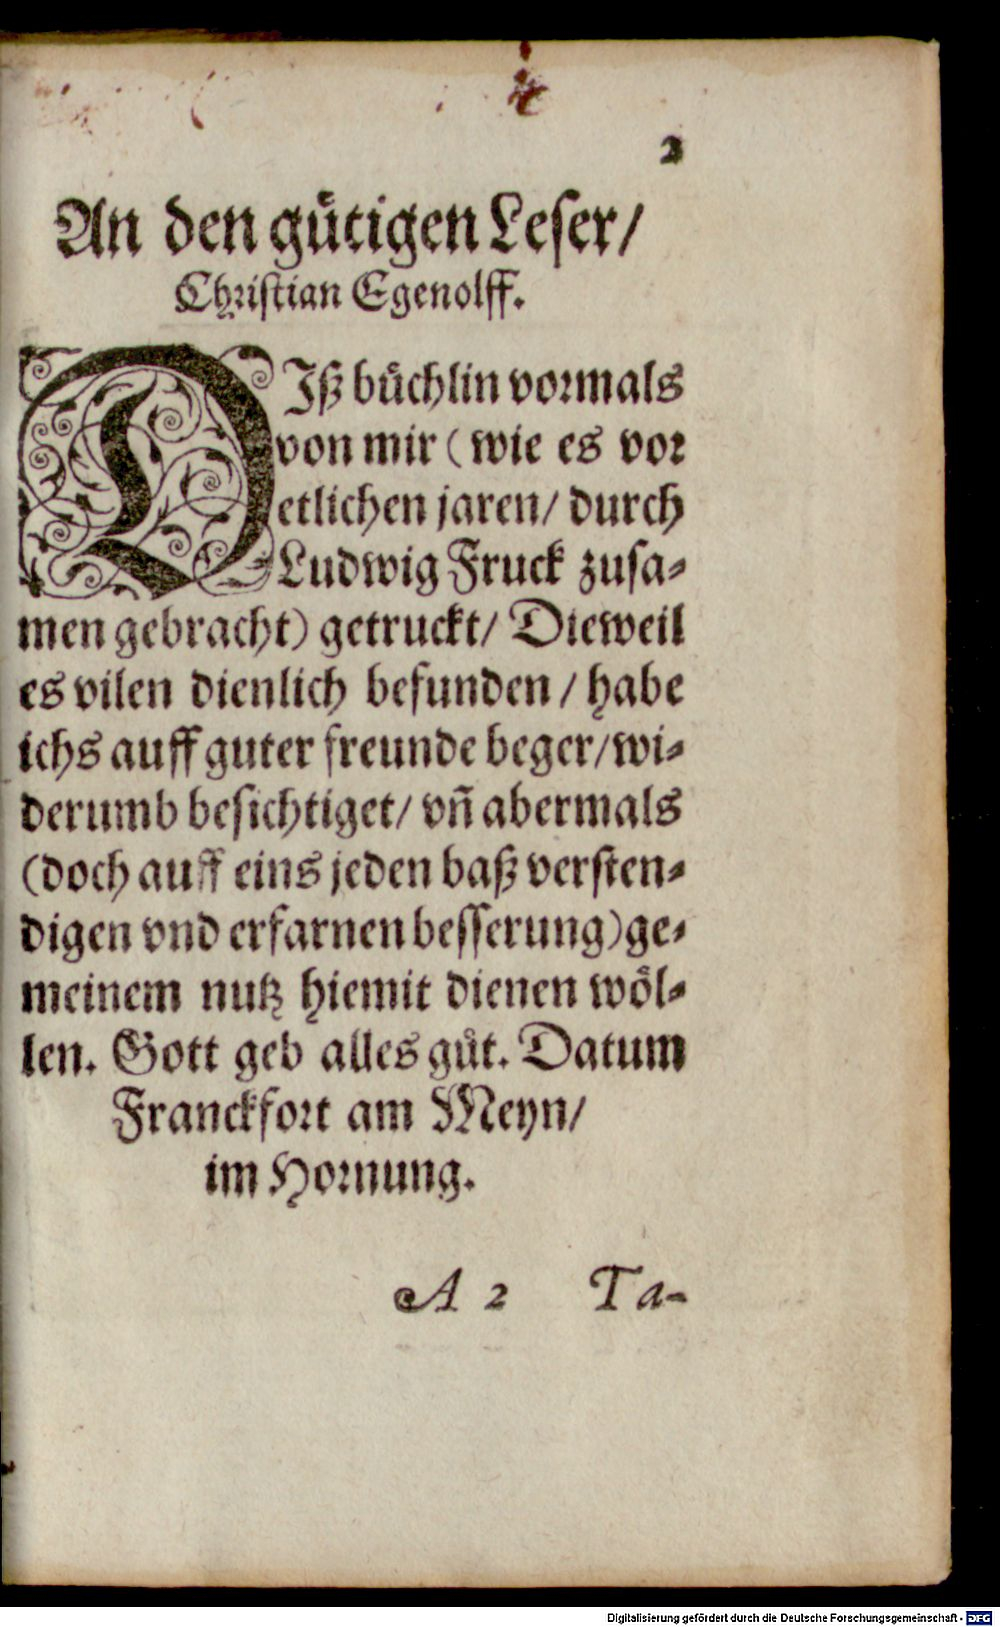 2
An den gütigen Leser/
Christian Egenolff.
DIß büchlin vormals
von mir (wie es vor
etlichen jaren/ durch
Ludwig Fruck zusa-
men gebracht) getruckt/ Dieweil
es vilen dienlich befunden / habe
ichs auff guter freunde beger/wi-
derumb besichtiget/ vñ abermals
(doch auff eins jeden baß versten-
digen vnd erfarnen besserung)ge-
meinem nutz hiemit dienen wöl-
len. Gott geb alles gůt. Datum
Franckfort am Meyn/
im Hornung.
A 2 Ta-
Digitalisierung gefördert durch die Deutsche Forschungsgemeinschaft - DFG